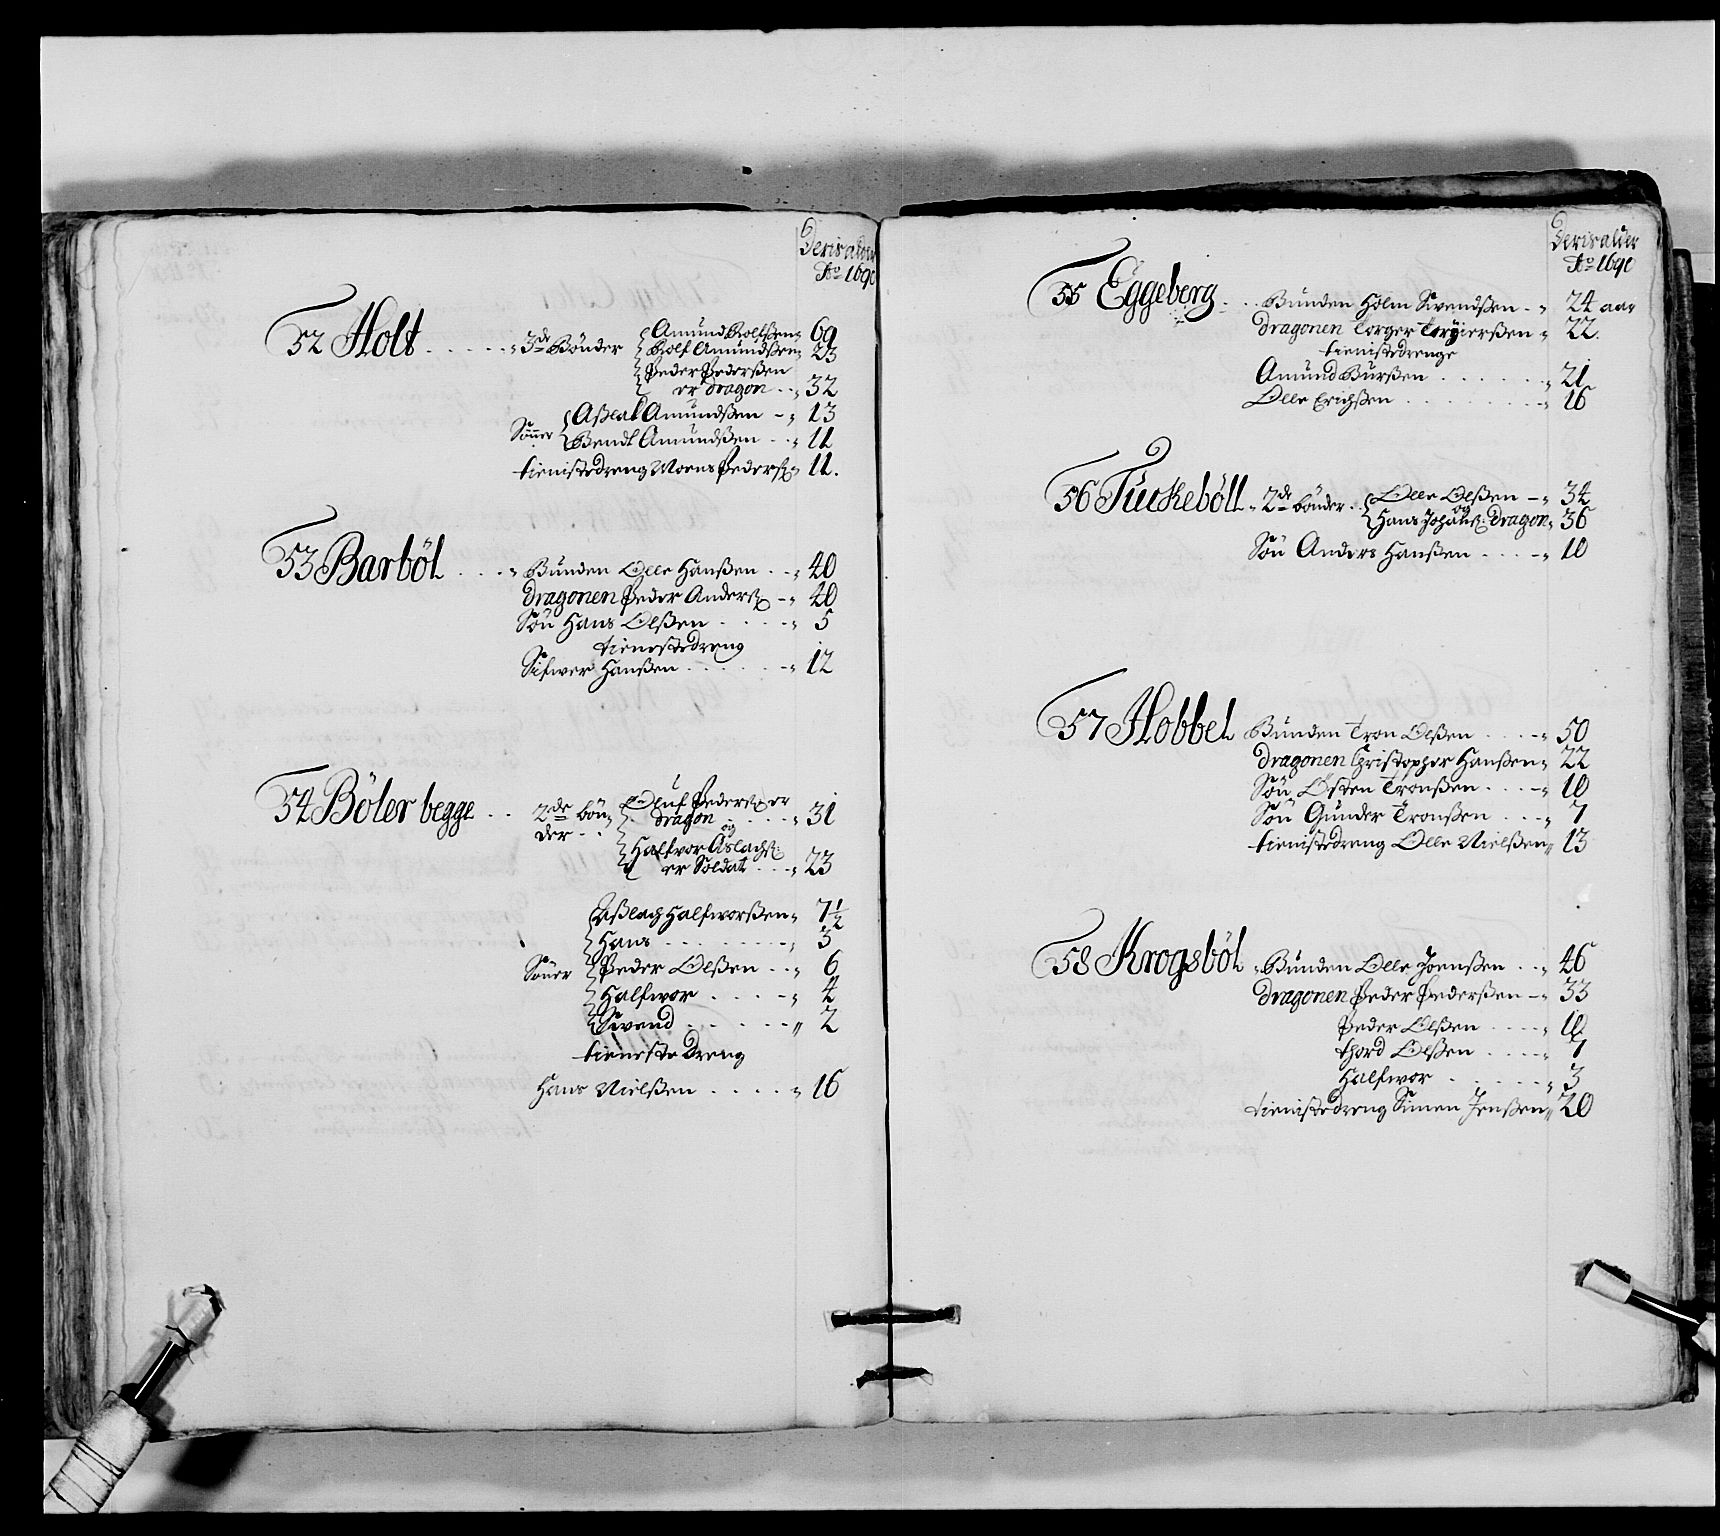 Deris alder
Ao 1690
52 Holt . . . . . 3de Bönder Amund Rolfßen 69
Rolf Amundßen 23
Peder Pederßen
er dragon . . 32
Sönner Aßlak Amundßen - 13
Bendt Amundßen . . 11
tienistedreng Moens Peders 11.
53 Barböl . . . . Bunden Olle Hanßen . . 40
dragonen Peder Anders - 40
Sön Hans Olßen . . . . 5
tienestedreng
Sifwer Hanßen . . . . . 12
54 Böler begge . . 2de bön- Oluf Peders er
der . . dragon . . . . 31
og
Halfvor Aslachs:
er Soldat . . . 23
Aßlach Halfworßen 7 1/2
Hans . . . . . . . 3
Söner Peder Olßen . . 6
Halfwor . . . . 4
Swend . . . . . 2
tieneste Dreng
Hans Nielßen . . . . 16
Deris alder
Ao 1690
55 Eggeberg . . Bunden Holm Swendßen . 24 aar
dragonen Torger Torgierßen 22.
tienistedrenge
Amund Burßen . . . . . . 21
Olle Erichßen . . . . . . . 16
56 Tuckeböll 2de bönder . . Olle Olßen - 34
og
Hans Johans: dragon 36
Sön Anders Hanßen . . . . 10
57 Hobbel Bunden Tron Olßen . . . . 50
dragonen Christopher Hanßen 22
Sön Osten Tronßen . . . . 10
Sön Gunder Tronßen . . . 7
tienistedreng Olle Nielßen 13
58 Krogsböl Bunden Olle Joenßen . . 46
dragonen Peder Pederßen - 33
Peder Olßen . . . . 10
Thord Olßen . . . . 7
Halfwor . . . . . . 3
tienistedreng Simen Jenßen 20